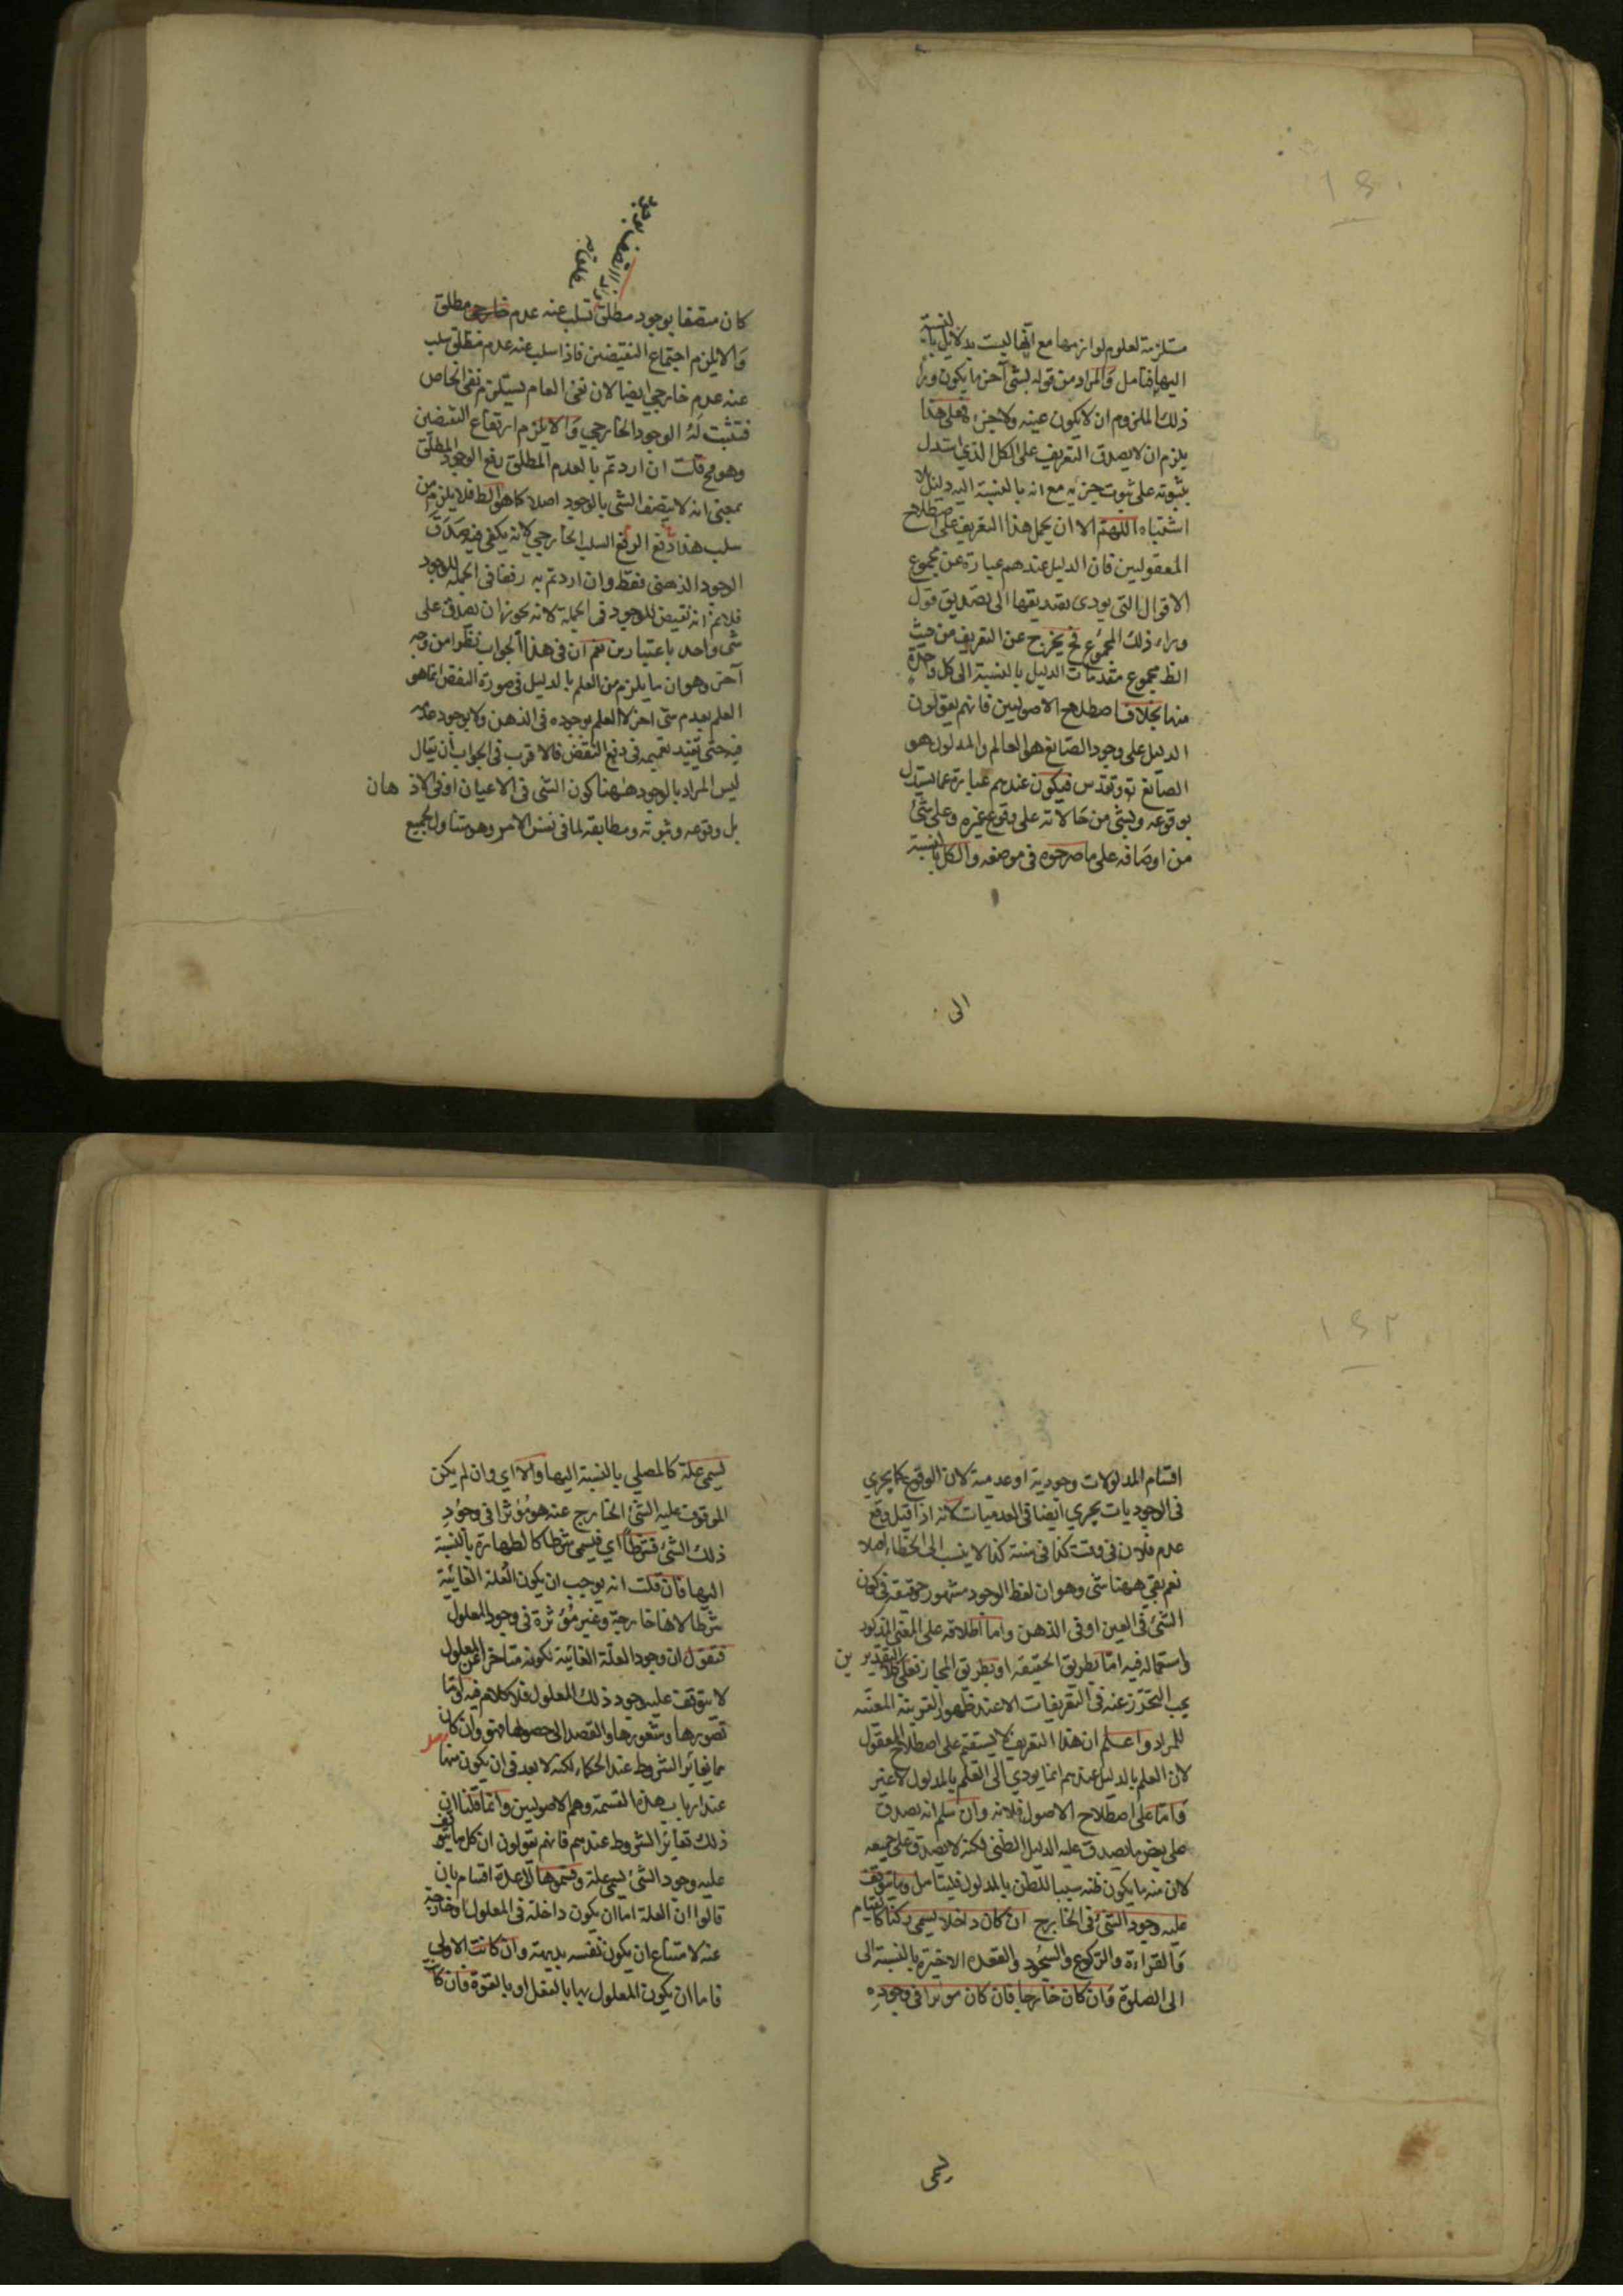 ١٤٠
مستلزمة لعلوم لوازمها مع انها ليست بدلايل بالنسبة
اليها فتامل والمراد من قوله بشئ آخر ما يكون وراء
ذلك الملزوم ان لا يكون عينه ولا جزءه فعلى هذا
يلزم ان لا يصدق التعريف على الكل الذي استدل
بثبوته على ثبوت جزئه مع انه بالنسبة اليه دليل بلا
اشتباه اللهم الا ان يحمل هذا التعريف على اصطلاح
المعقوليين فان الدليل عندهم عبارة عن مجموع
الاقوال التى يودى تصديقها الى تصديق قول
وراء ذلك المجموع فح يخرج عن التعريف من حيث
الظ مجموع مقدمات الدليل بالنسبة الى كل واحدة
منها بخلاف اصطلاح الاصوليين فانهم يقولون
الدليل على وجود الصانع هو العالم والمدلول هو
الصانع تع وتقدس فيكون عندهم عبارة عما يستدل
بوقوعه وبشئ من حالاته على وقوع غيره وعلى شئ
من اوصافه على ما صرحوه فى موضعه والكل بالنسبة
الى
بوجود
علاقته
كان متصفا بوجود مطلق تسلب عنه عدم خارجى مطلق
والا يلزم اجتماع النقيضين فاذا سلب عنه عدم مطلق سلب
عنه عدم خارجي ايضا لان نفى العام يستلزم نفى الخاص
فتثبت له الوجود الخارجي والا يلزم ارتفاع النقيضين
وهو مح قلت ان اردتم بالعدم المطلق رفع الوجود المطلق
بمعنى انه لا يتصف الشئ بالوجود اصلا كما هو الظ فلا يلزم من
سلب هذا الرفع السلب الخارجي لانه يكفى فيه صدق
الوجود الذهنى فقط وان اردتم به رفعا فى الجملة للوجود
فلا نم انه نقيض للوجود فى الجملة لانه يجوز ان يصدق على
شئ واحد باعتبارين نعم ان فى هذا الجواب نظرا من وجه
آخر وهو ان ما يلزم من العلم بالدليل فى صورة النقض انما هو
العلم بعدم شئ اخر لا العلم بوجوده فى الذهن ولا بوجود عدمه
فيه حتى يفيد تعميمه فى دفع النقض فالاقرب فى الجواب أن يقال
ليس المراد بالوجود ههنا كون الشئ فى الاعيان او فى الاذهان
بل وقوعه وثبوته ومطابقه لما فى نفس الامر وهو متناول لجميع
١٤٢
اقسام المدلولات وجودية او عدمية لان الوقوع كما يجري
فى الوجوديات يجري ايضا فى العدميات لانه اذا قيل وقع
عدم فلان فى وقت كذا فى سنة كذا لا ينسب الى الخطاء اصلا
نعم بقى ههنا شئ وهو ان لفظ الوجود مشهور حقيقة فى كون
الشئ فى العين او فى الذهن واما اطلاقه على المعنى المذكور
واستعماله فيه اما بطريق الحقيقة او بطريق المجاز فعلى كلا التقديرين
يجب التحرز عنه فى التعريفات الا عند ظهور القرينة المعينة
للمراد واعلم ان هذا التعريف لا يستقيم على اصطلاح المعقول
لان العلم بالدليل عندهم انما يودي الى العلم بالمدلول لا غير
واما على اصطلاح الاصول فلانه وان سلم انه يصدق
على بعض ما يصدق عليه الدليل الظنى لكنه لا يصدق على جميعه
لان منه ما يكون ظنه سببا للظن بالمدلول فليتامل وما يتوقف
عليه وجود الشئ فى الخارج ان كان داخلا يسمى ركنا كالقيام
والقراءة والركوع والسجود والقعدة الاخيرة بالنسبة الى
الى الصلوة وان كان خارجا فان كان موثرا فى وجوده
يسمى
يسمى علة كالمصلي بالنسبة اليها والا اي وان لم يكن
الموقوف عليه الشئ الخارج عنه هو مؤثرا فى وجود
ذلك الشئ فشرطا اي فيسمى شرطا كالطهارة بالنسبة
اليها فان قلت انه يوجب ان يكون العلة الغائية
شرطا لانها خارجة وغير مؤثرة فى وجود المعلول
فنقول ان وجود العلة الغائية لكونه متاخرا عن المعلول
لا يتوقف عليه وجود ذلك المعلول فلا كلام فيه واما
تصورها وشعورها والقصد الى حصولها فهو وان كان
مما يغاير الشروط عند الحكماء لكنه لا بعد فى ان يكون منها
عند ارباب هذه القسمة وهم الاصوليين وانما قلنا ان
ذلك تغاير الشروط عندهم فانهم يقولون ان كل ما يتوقف
عليه وجود الشئ يسمى علة وقسموها الى عدة اقسام بان
قالوا ان العلة اما ان يكون داخلة فى المعلول او خارجة
عنه لامتناع ان يكون نفسه بديهة وان كانت الاولى
فاما ان يكون المعلول بها بالفعل او بالقوة فان كان